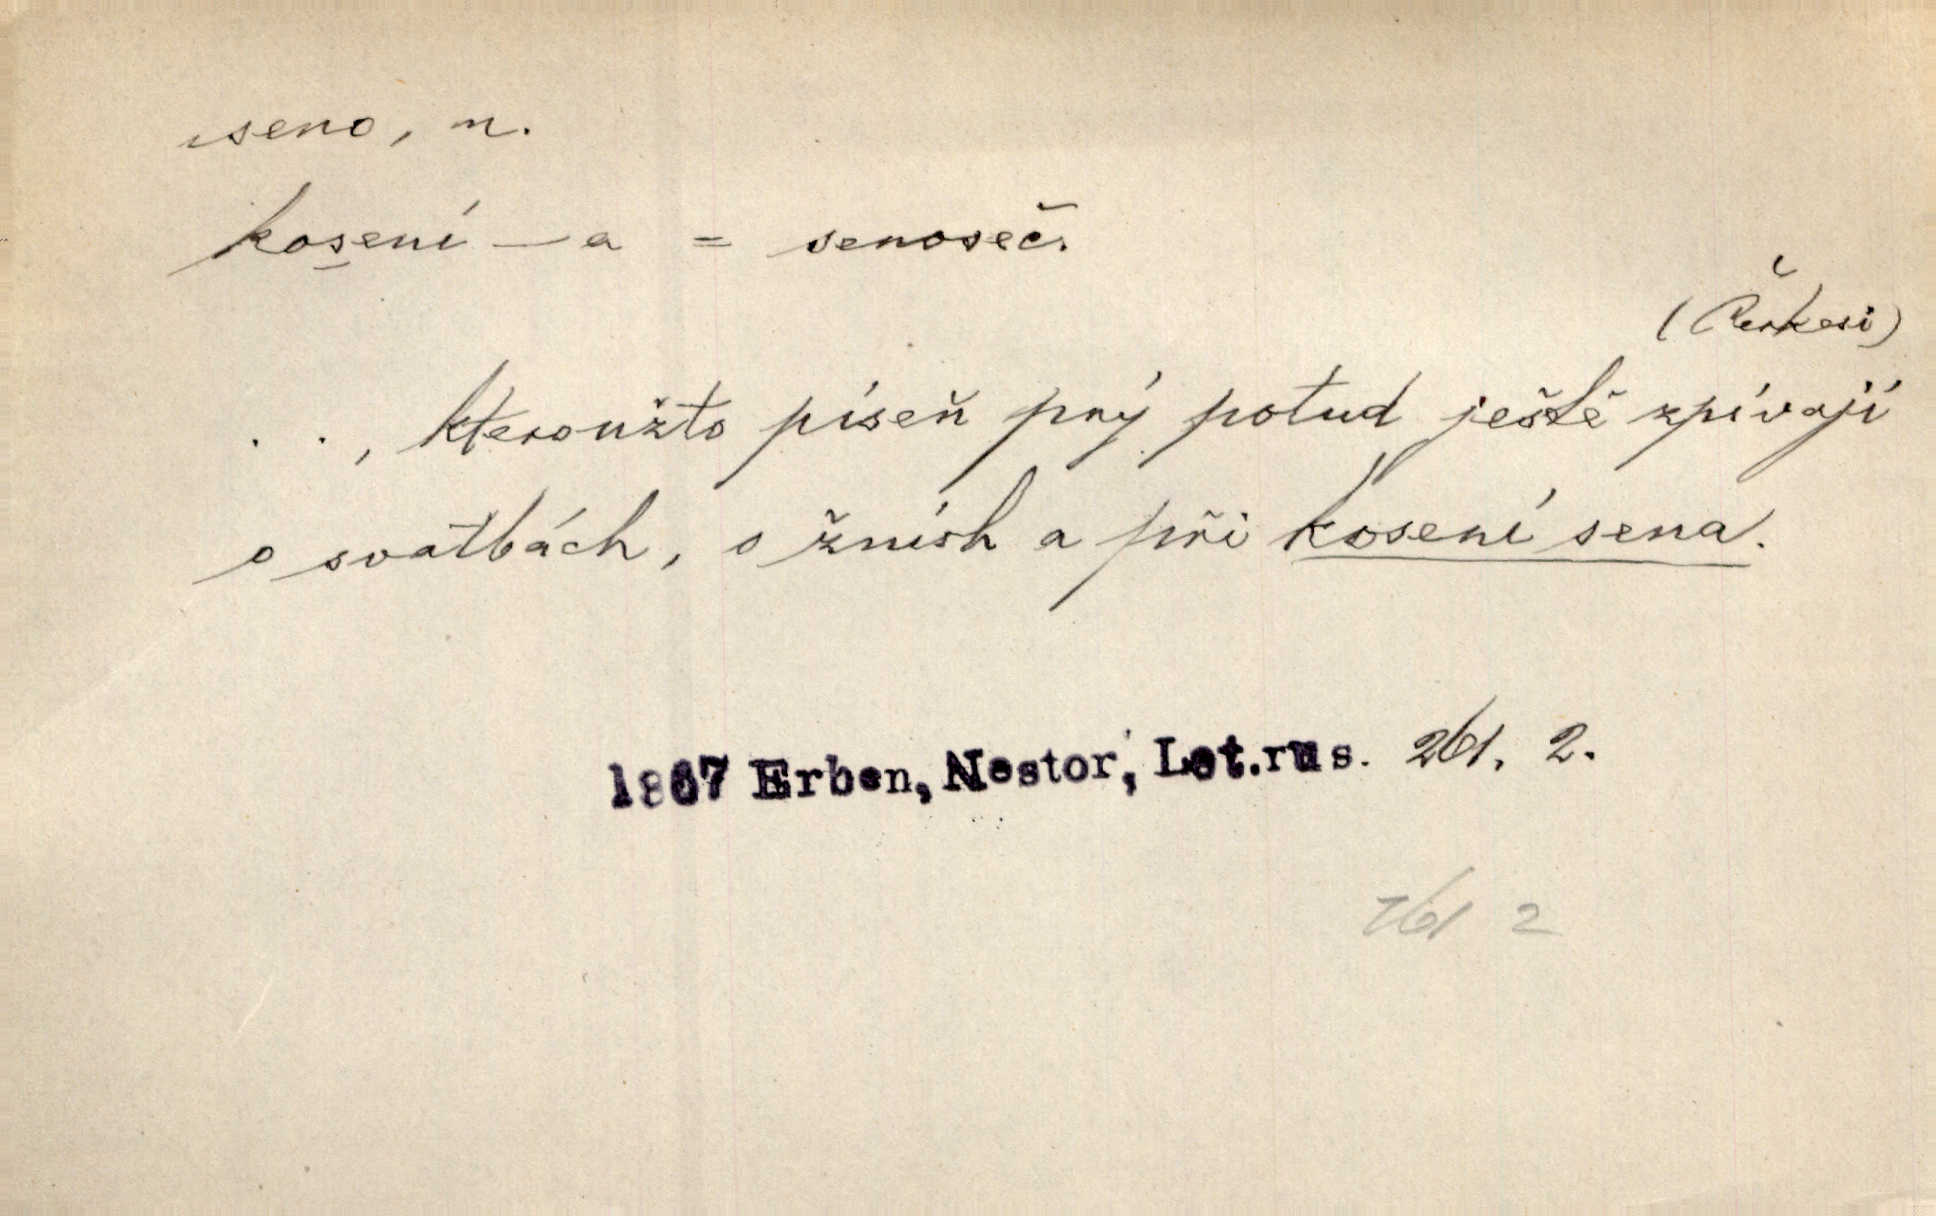 seno, n.
kosení — a = senoseč.
(Čerkesi)
. . , kteroužto píseň prý potud ještě zpívají
o svatbách, o žních a při kosení sena.
1867 Erben, Nestor, Let.rus. 261, 2.
261 2